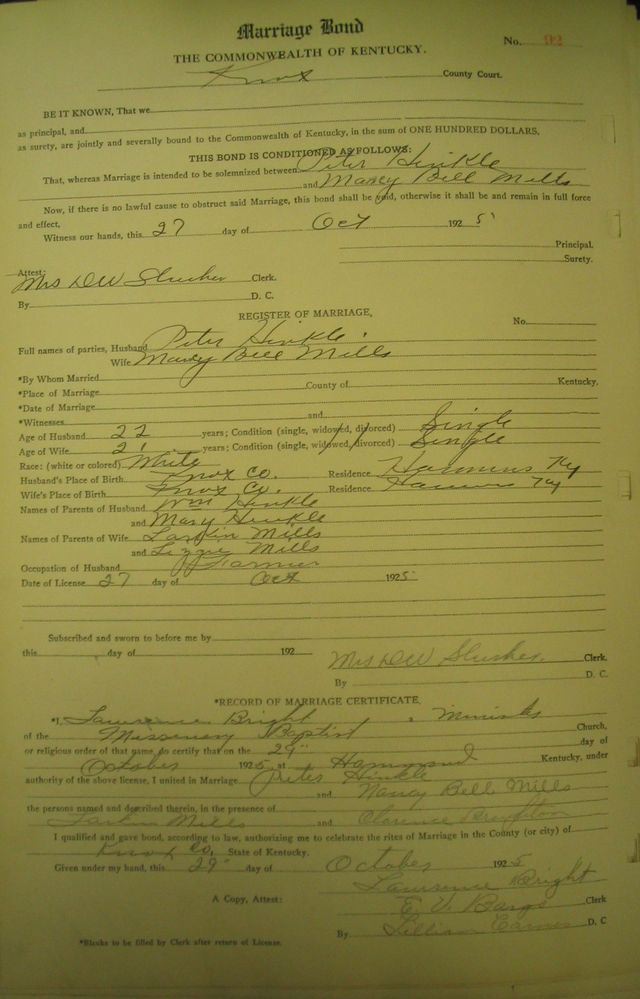 Marriage Bond
No. 92
THE COMMONWEALTH OF KENTUCKY.
Knox County Court.
BE IT KNOWN, That we
as principal, and
as surety, are jointly and severally bound to the Commonwealth of Kentucky, in the sum of ONE HUNDRED DOLLARS,
THIS BOND IS CONDITIONED AS FOLLOWS:
That, whereas Marriage is intended to be solemnized between Peter Hinkle
and Nancy Bell Mills
Now, if there is no lawful cause to obstruct said Marriage, this bond shall be void, otherwise it shall be and remain in full force
and effect,
Witness our hands, this 27 day of Oct 1925
Principal.
Surety.
Attest:
Mrs D W Slusher Clerk.
By D. C.
REGISTER OF MARRIAGE,
No.
Full names of parties, Husband Peter Hinkle.
Wife Nancy Bell Mills
*By Whom Married
*Place of Marriage County of Kentucky.
*Date of Marriage
*Witnesses and
Age of Husband 22 years; Condition (single, widowed, divorced) Single
Age of Wife 21 years; Condition (single, widowed, divorced) Single
Race: (white or colored) White
Husband's Place of Birth Knox Co. Residence Ky
Wife's Place of Birth Knox Co. Residence Ky
Names of Parents of Husband Wm Hinkle
and Mary Hinkle
Names of Parents of Wife Larkin Mills
and Lizzie Mills
Occupation of Husband Farmer
Date of License 27 day of Oct 1925
Subscribed and sworn to before me by
this day of 192
Mrs D W Slusher. Clerk.
By D. C.
*RECORD OF MARRIAGE CERTIFICATE,
*I, Lawrence Bright, Minister
of the Missionary Baptist Church,
or religious order of that name, do certify that on the 29" day of
October 1925 at Hammond Kentucky, under
authority of the above license, I united in Marriage Peter Hinkle
and Nancy Bell Mills
the persons named and described therein, in the presence of
Larkin Mills and Clarence
I qualified and gave bond, according to law, authorizing me to celebrate the rites of Marriage in the County (or city) of
Knox Co, State of Kentucky.
Given under my hand, this 29" day of October 1925
Lawrence Bright
A Copy, Attest: E. V. Clerk
By Lillian D. C
*Blanks to be filled by Clerk after return of License.